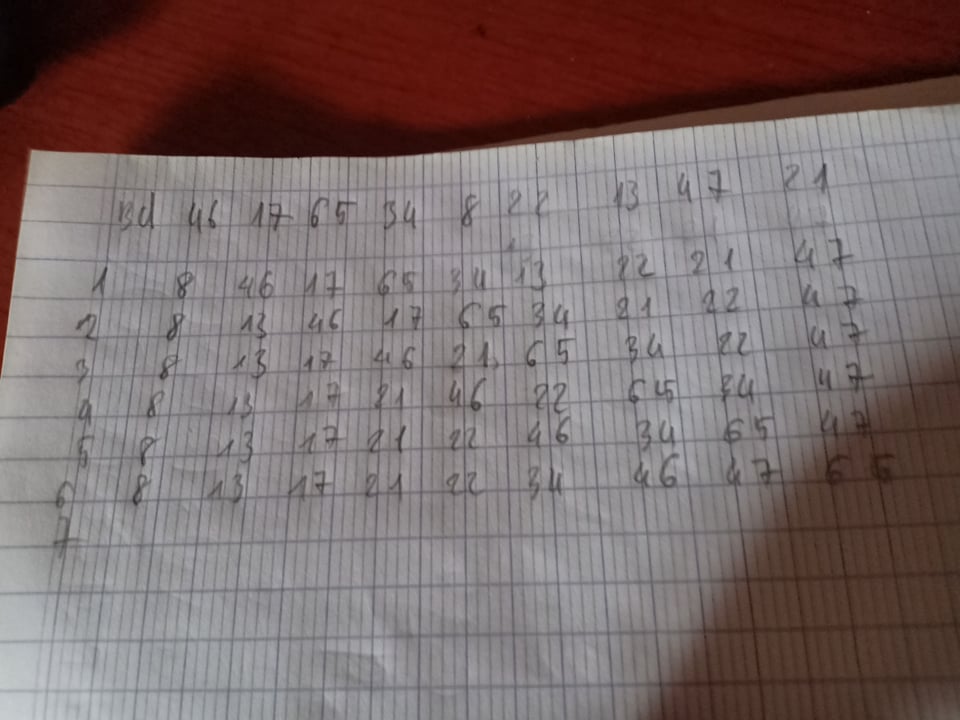 Bd 46 17 65 34 8 22 13 47 21
1 8 46 17 65 34 13 22 21 47
2 8 13 46 17 65 34 21 22 47
3 8 13 17 46 21 65 34 22 47
4 8 13 17 21 46 22 65 34 47
5 8 13 17 21 22 46 34 65 47
6 8 13 17 21 22 34 46 47 65
7